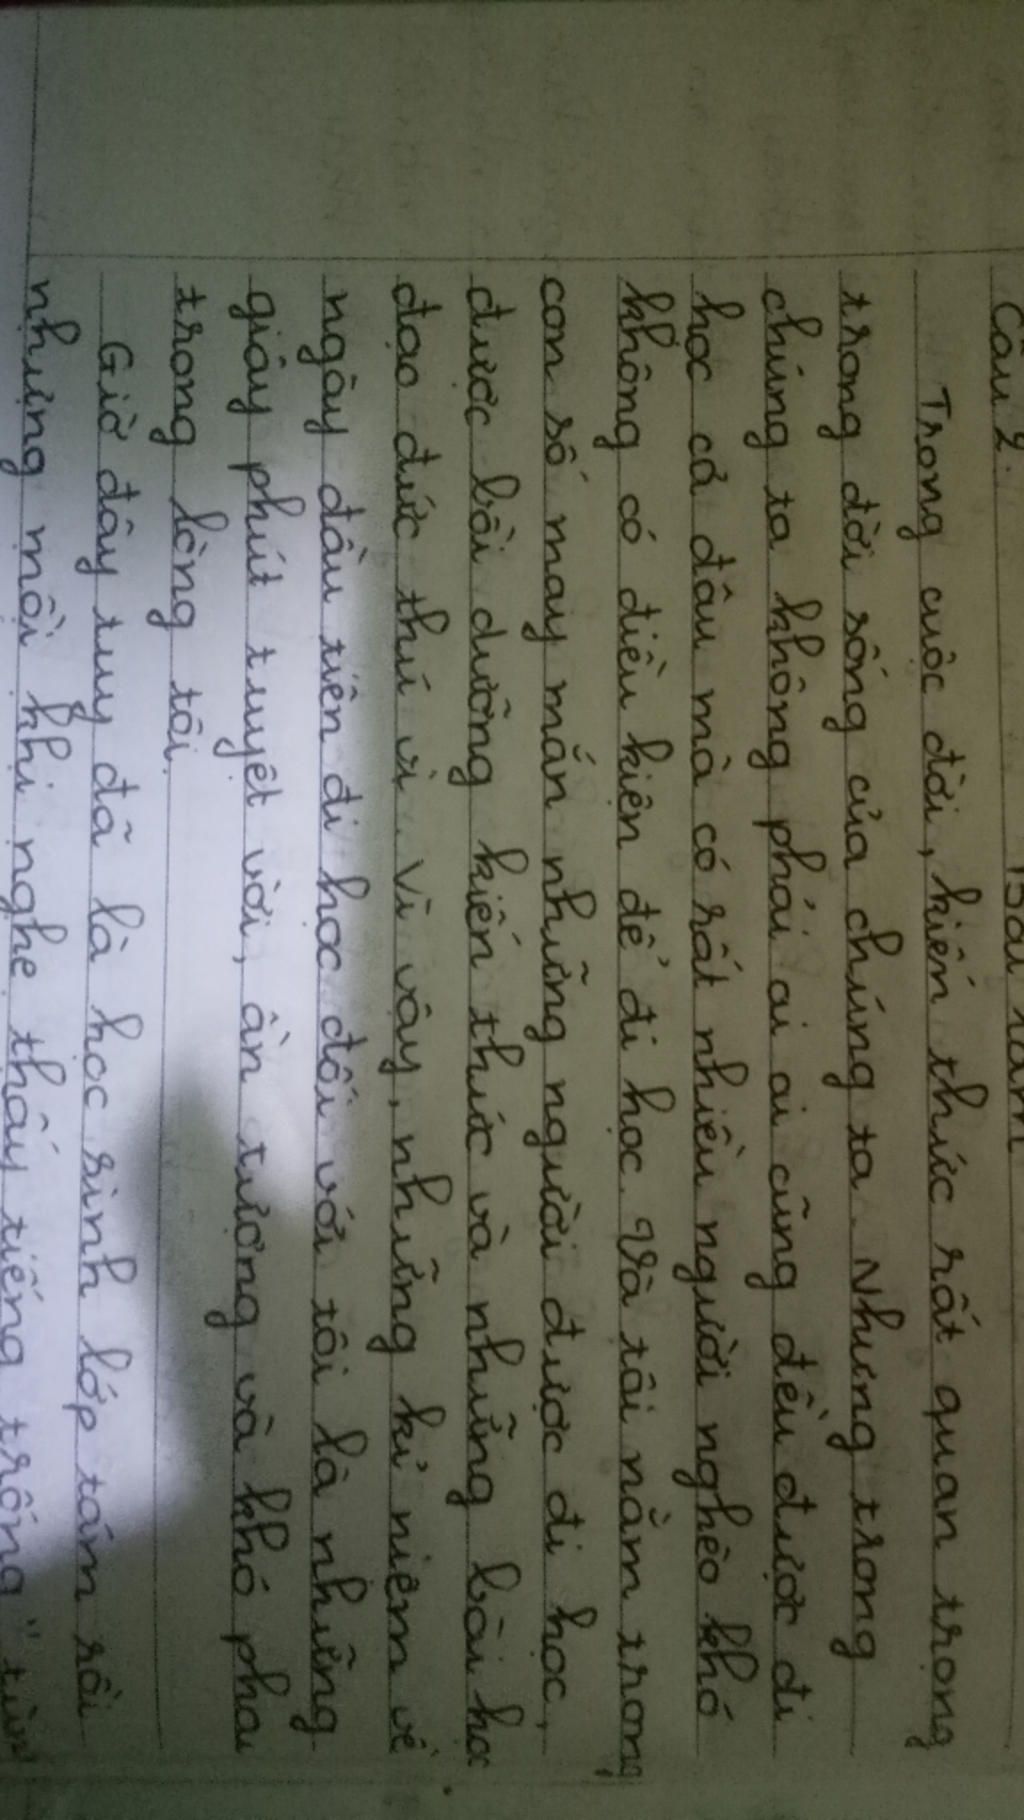 Câu 2. Bài làm
Trong cuộc đời, kiến thức rất quan trọng
trong đời sống của chúng ta. Nhưng trong
chúng ta không phải ai ai cũng đều được đi
học cả đâu mà có rất nhiều người nghèo khó
không có điều kiện để đi học. Và tôi nằm trong
con số may mắn những người được đi học,
được bồi dưỡng kiến thức và những bài học
đạo đức thú vị. Vì vậy, những kỉ niệm về
ngày đầu tiên đi học đối với tôi là những
giây phút tuyệt vời, ấn tượng và khó phai
trong lòng tôi.
Giờ đây tuy đã là học sinh lớp tám rồi
nhưng mỗi khi nghe thấy tiếng trống "tùng